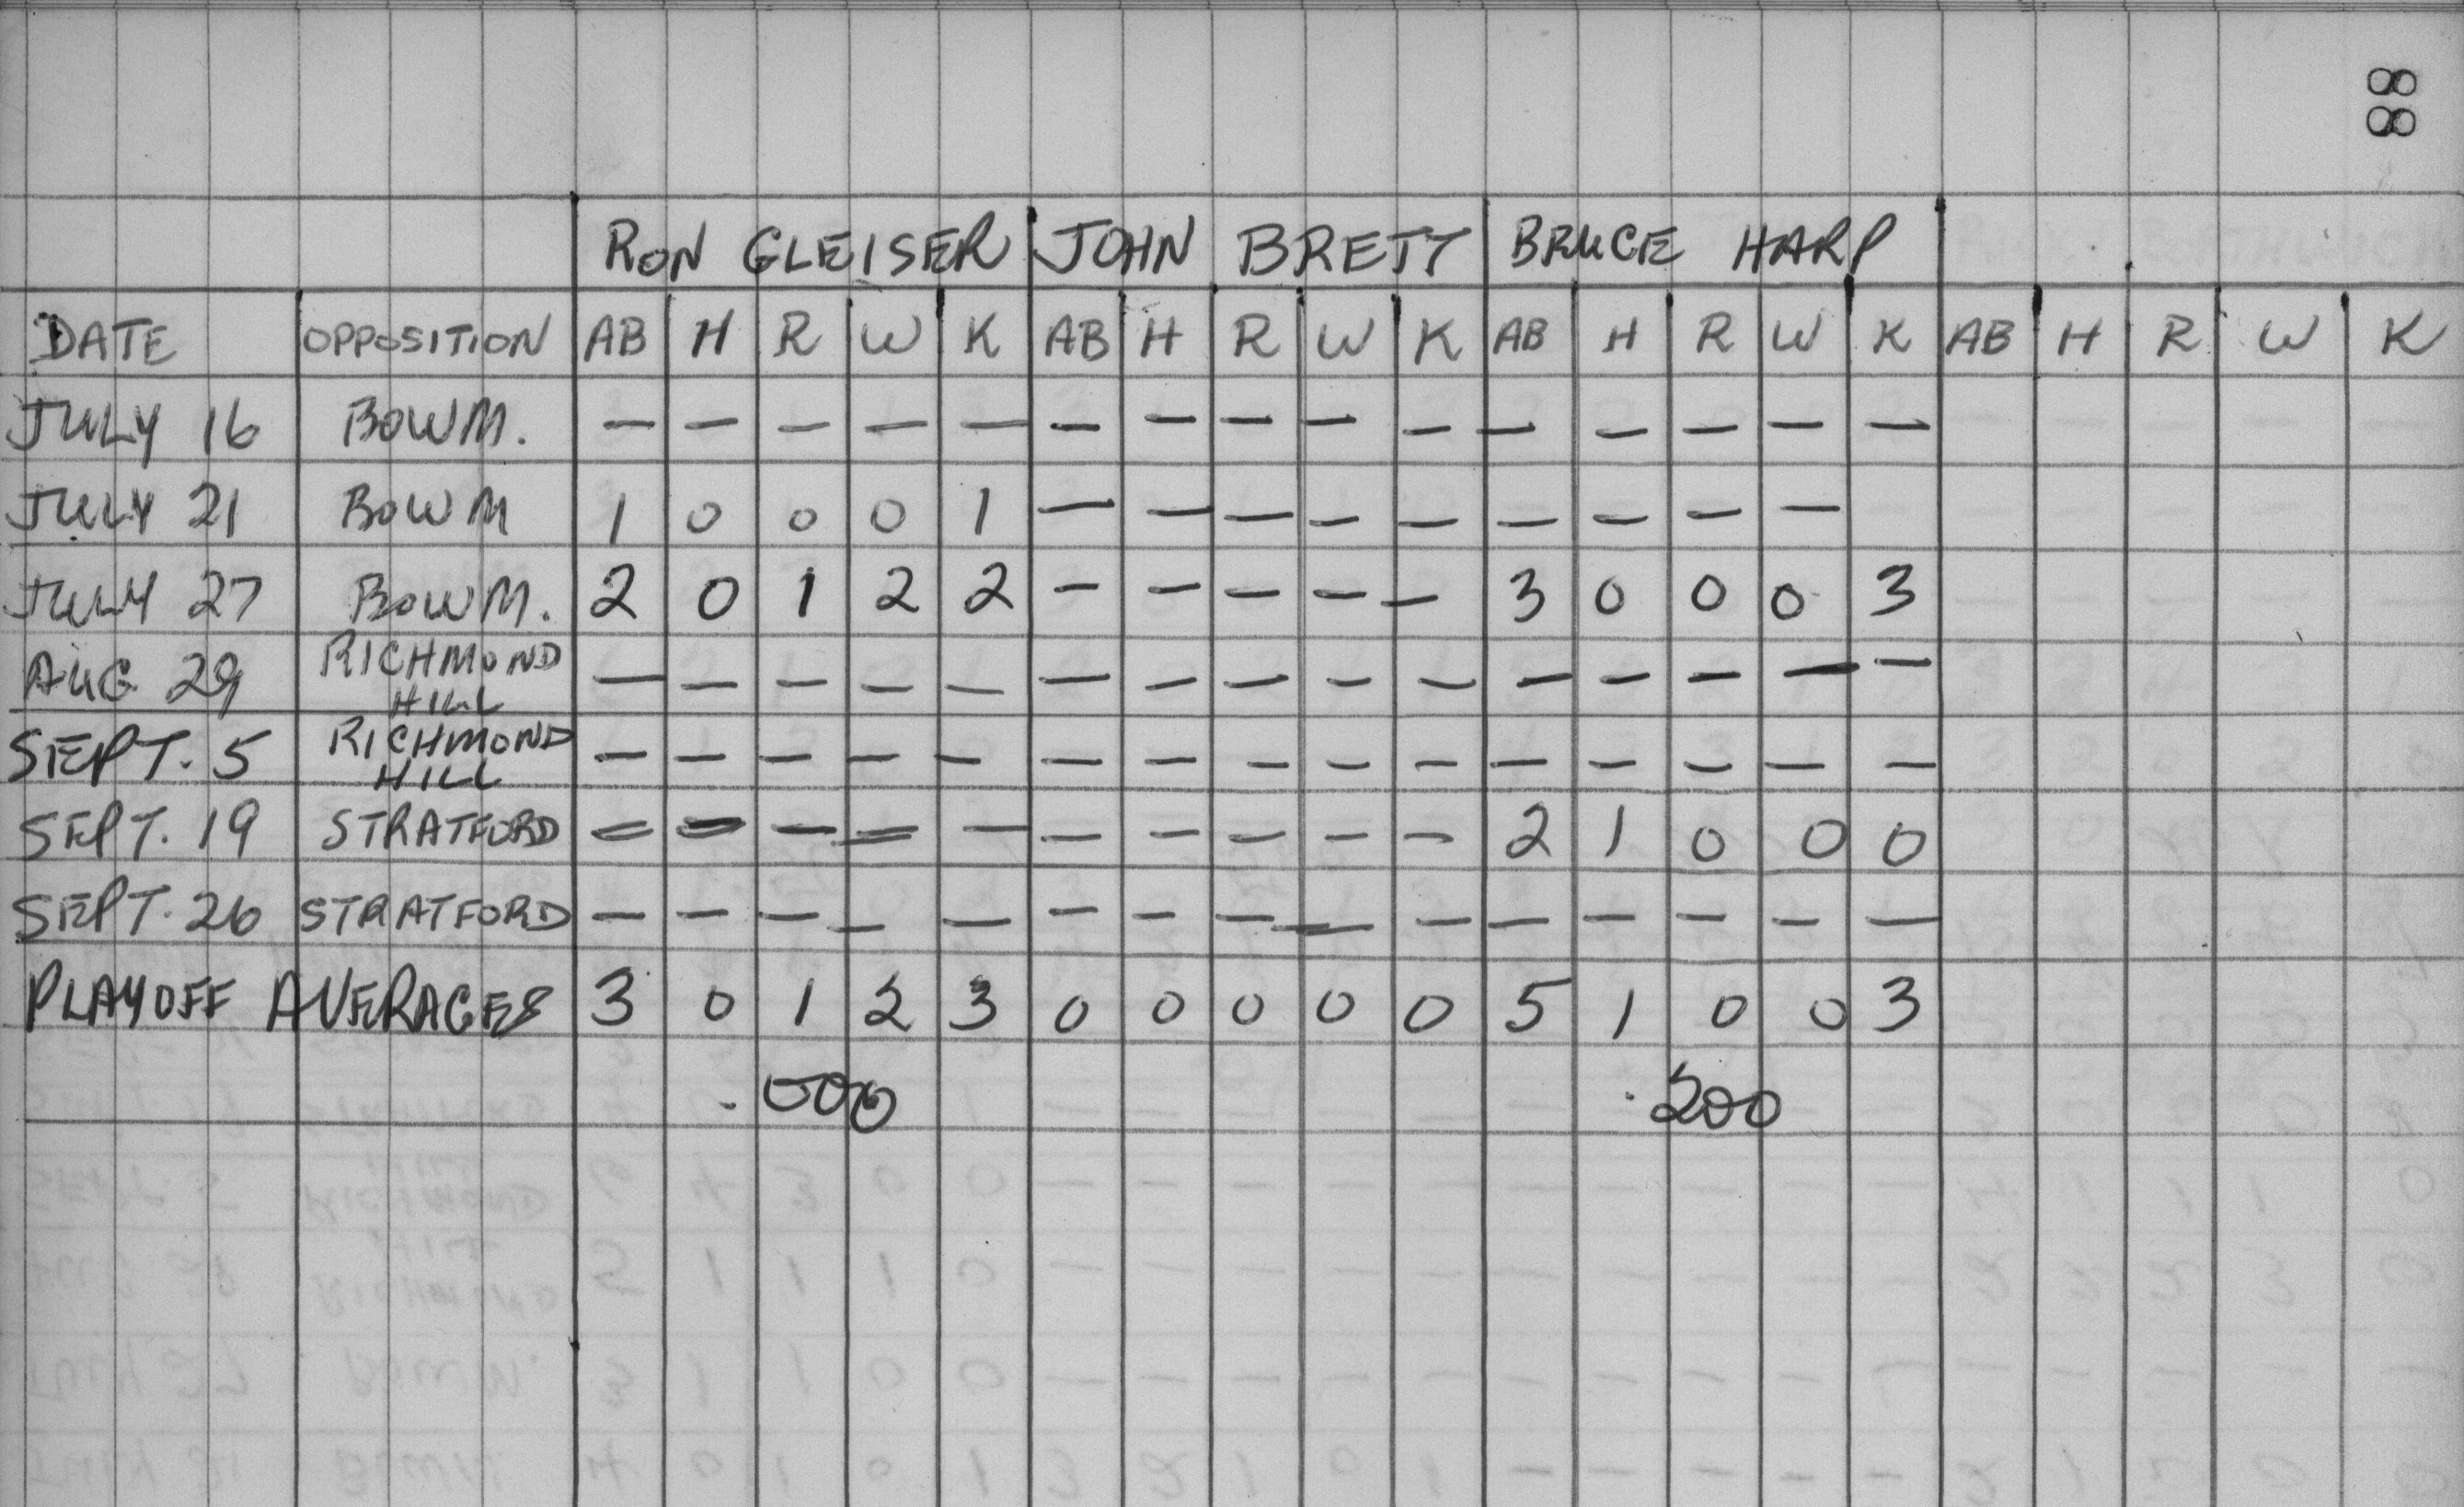 88
RON GLEISER JOHN BRETT BRUCE HARP
DATE OPPOSITION AB H R W K AB H R W K AB H R W K AB H R W K
JULY 16 BOWM. — — — — — — — — — — — — — — —
JULY 21 BOWM 1 0 0 0 1 — — — — — — — — —
JULY 27 BOWM. 2 0 1 2 2 — — — — — 3 0 0 0 3
AUG 29 RICHMOND HILL — — — — — — — — — — — — — — —
SEPT. 5 RICHMOND HILL — — — — — — — — — — — — — — —
SEPT. 19 STRATFORD — — — — — — — — — — 2 1 0 0 0
SEPT. 26 STRATFORD — — — — — — — — — — — — — — —
PLAYOFF AVERAGES 3 0 1 2 3 0 0 0 0 0 5 1 0 0 3
.000 .200